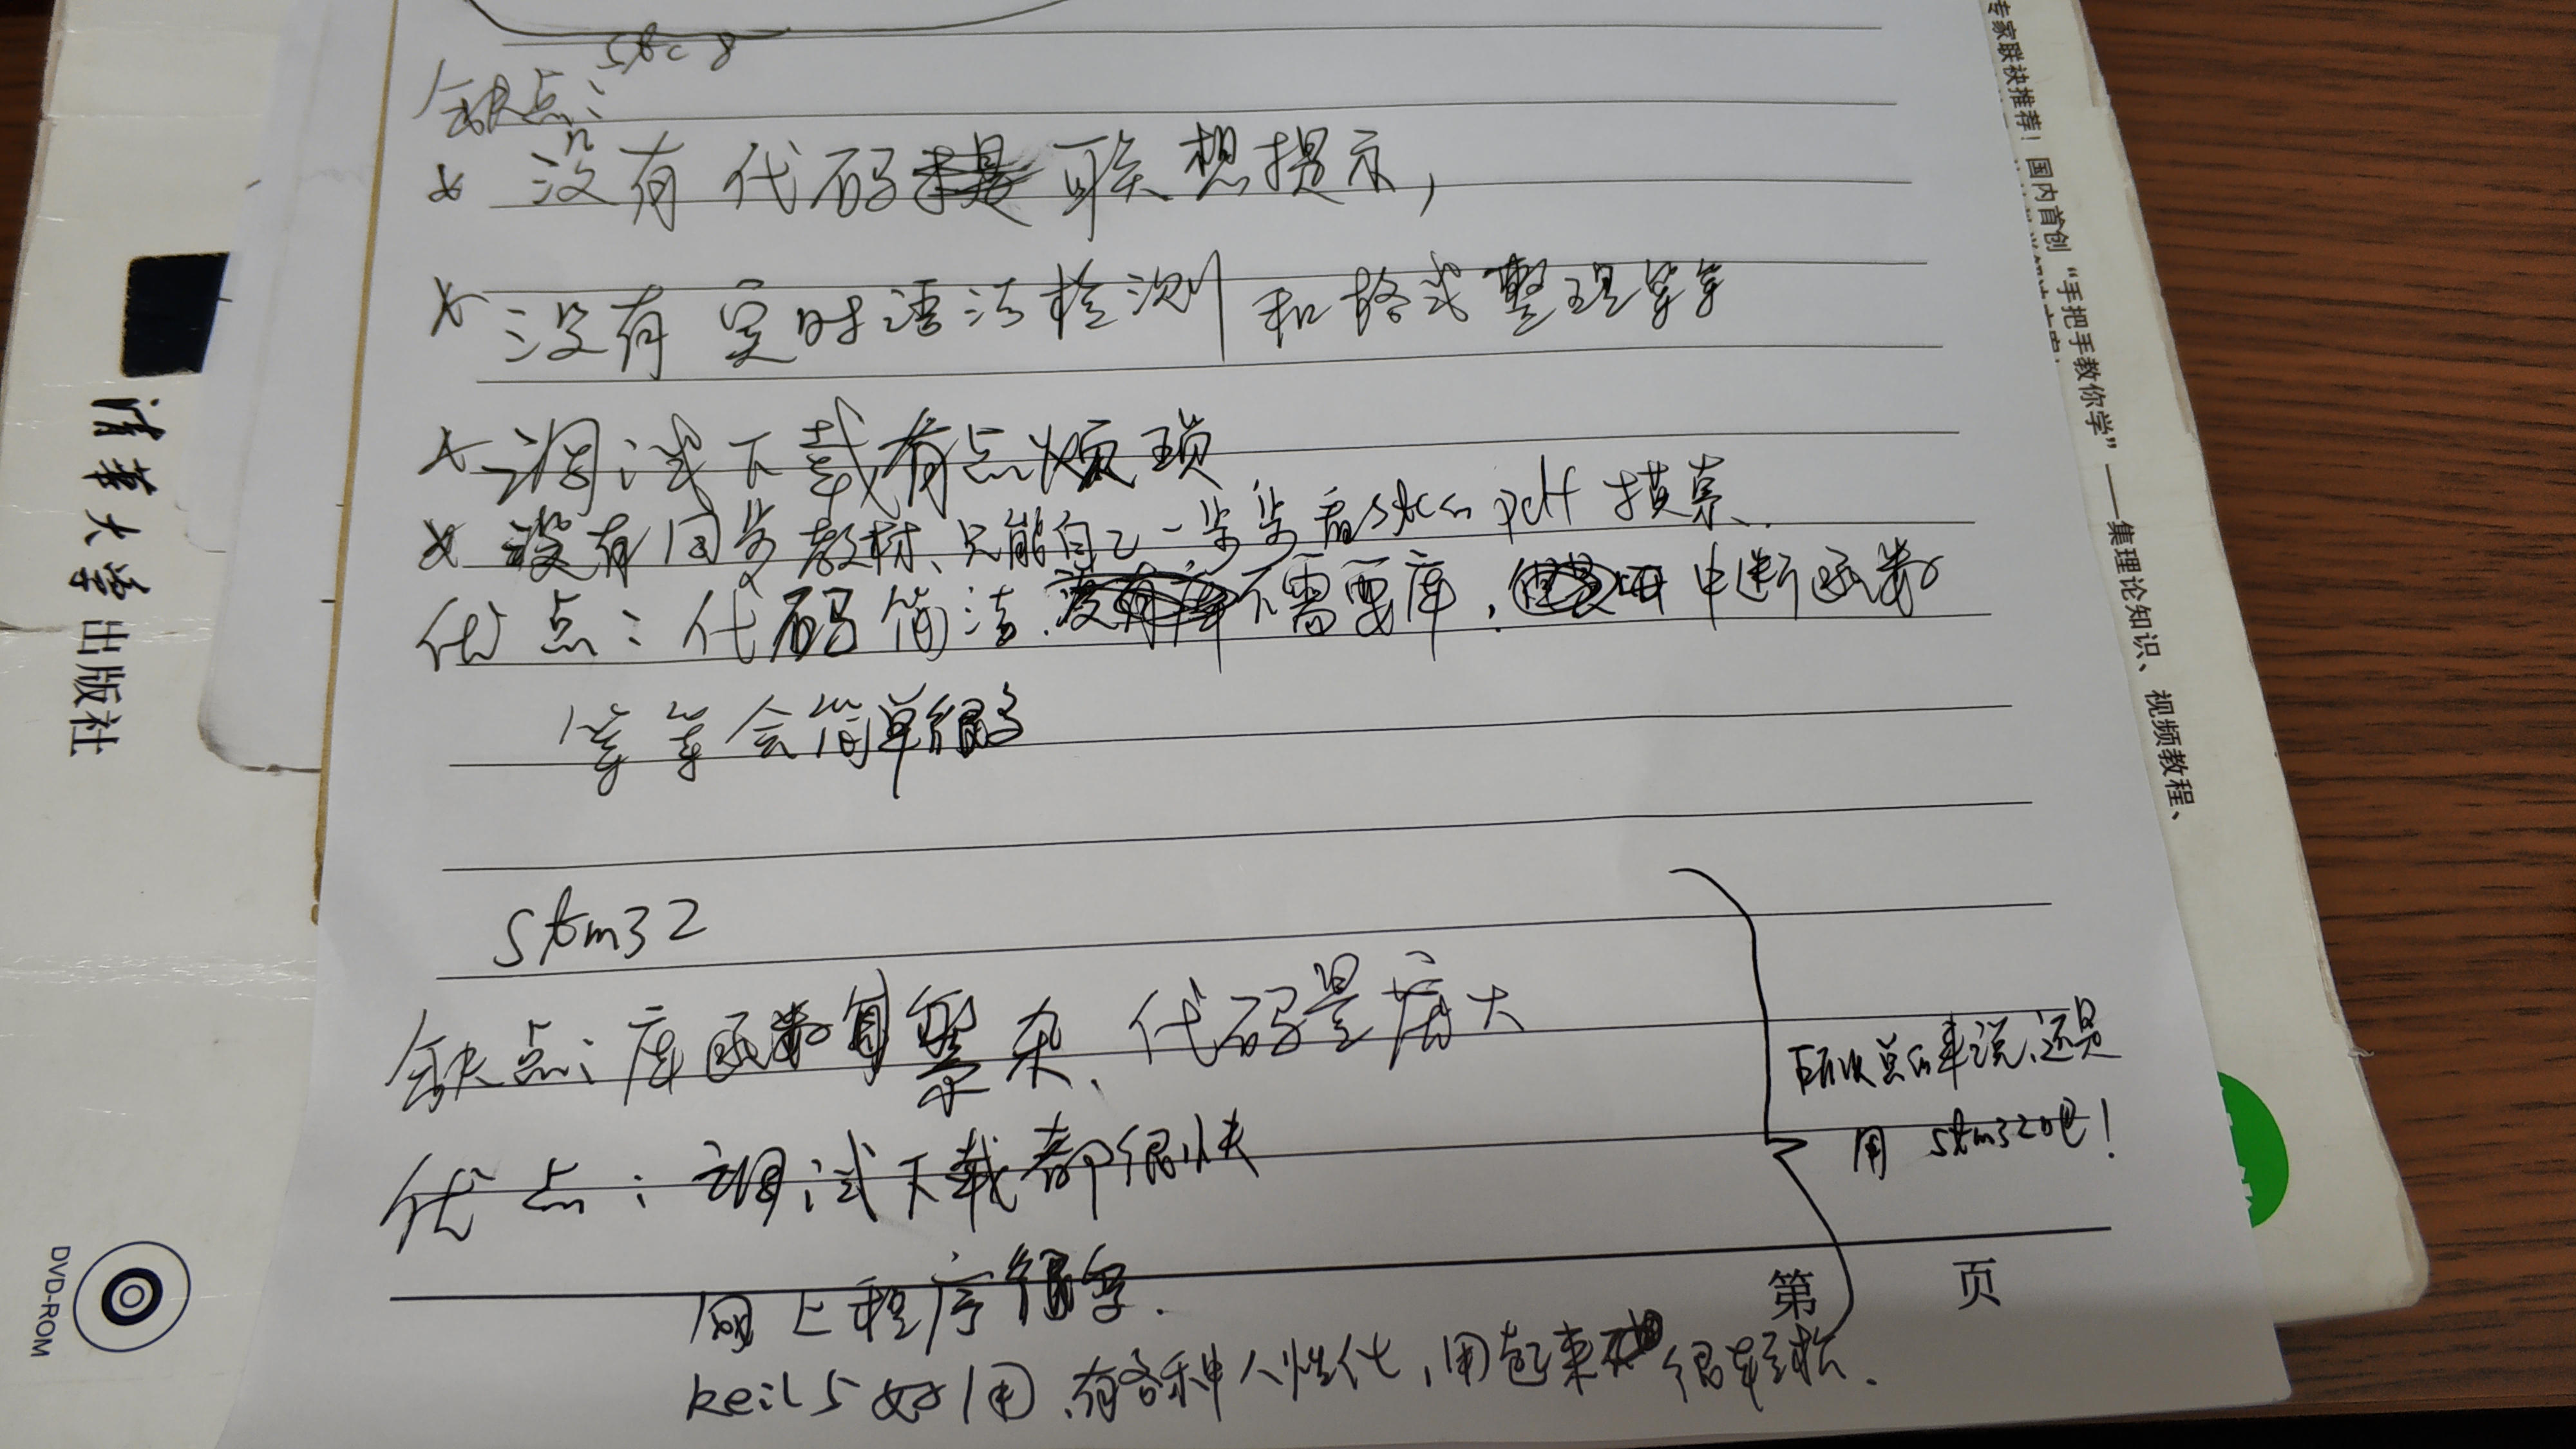 stc8
缺点:
× 没有代码联想提示,
× 没有实时语法检测和格式整理等等
× 调试下载有点烦琐
× 没有同步教材、只能自己一步步看stc的pdf摸索.
优点:代码简洁、不需要库,中断函数
等等会简单很多
stm32
缺点:库函数繁杂、代码量庞大
优点:调试下载都很快
网上程序很多.
keil5好用,有各种人性化,用起来很轻松.
所以总的来说,还是
用 stm32吧!
第 页
清华大学出版社
DVD-ROM
专家联袂推荐!国内首创“手把手教你学”——集理论知识、视频教程、